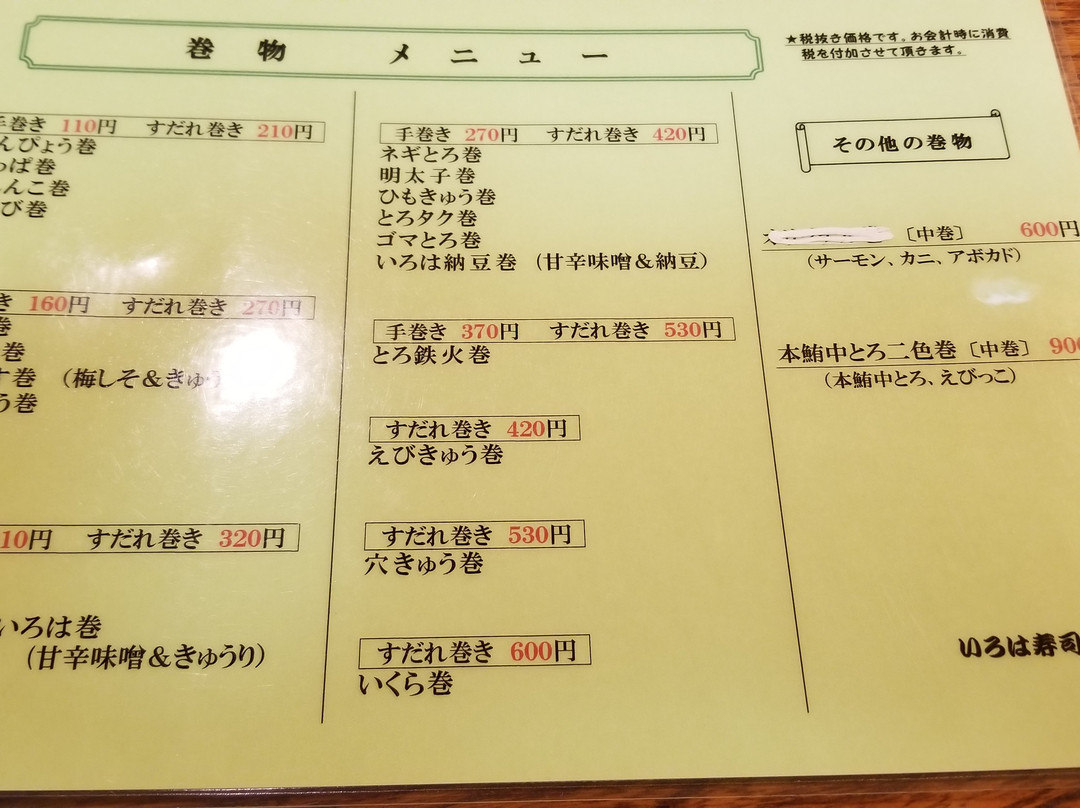 巻物 メニュー
★税抜き価格です。お会計時に消費
税を付加させて頂きます。
手巻き 110円 すだれ巻き 210円
んぴょう巻
っぱ巻
んこ巻
び巻
き 160円 すだれ巻き 270円
巻
巻
す巻 (梅しそ&きゅう
う巻
10円 すだれ巻き 320円
いろは巻
(甘辛味噌&きゅうり)
手巻き 270円 すだれ巻き 420円
ネギとろ巻
明太子巻
ひもきゅう巻
とろタク巻
ゴマとろ巻
いろは納豆巻 (甘辛味噌&納豆)
手巻き 370円 すだれ巻き 530円
とろ鉄火巻
すだれ巻き 420円
えびきゅう巻
すだれ巻き 530円
穴きゅう巻
すだれ巻き 600円
いくら巻
その他の巻物
〔中巻〕 600円
(サーモン、カニ、アボカド)
本鮪中とろ二色巻〔中巻〕 900
(本鮪中とろ、えびっこ)
いろは寿司